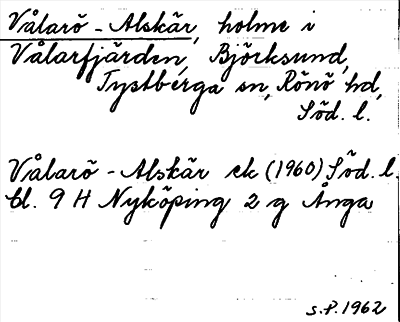 Vålarö - Alskär, holme i
Vålarfjärden, Björksund,
Tystberga sn, Rönö hd,
Söd. l.
Vålarö - Alskär ek (1960) Söd. l.
bl. 9 H Nyköping 2 g Ånga
S.P. 1962